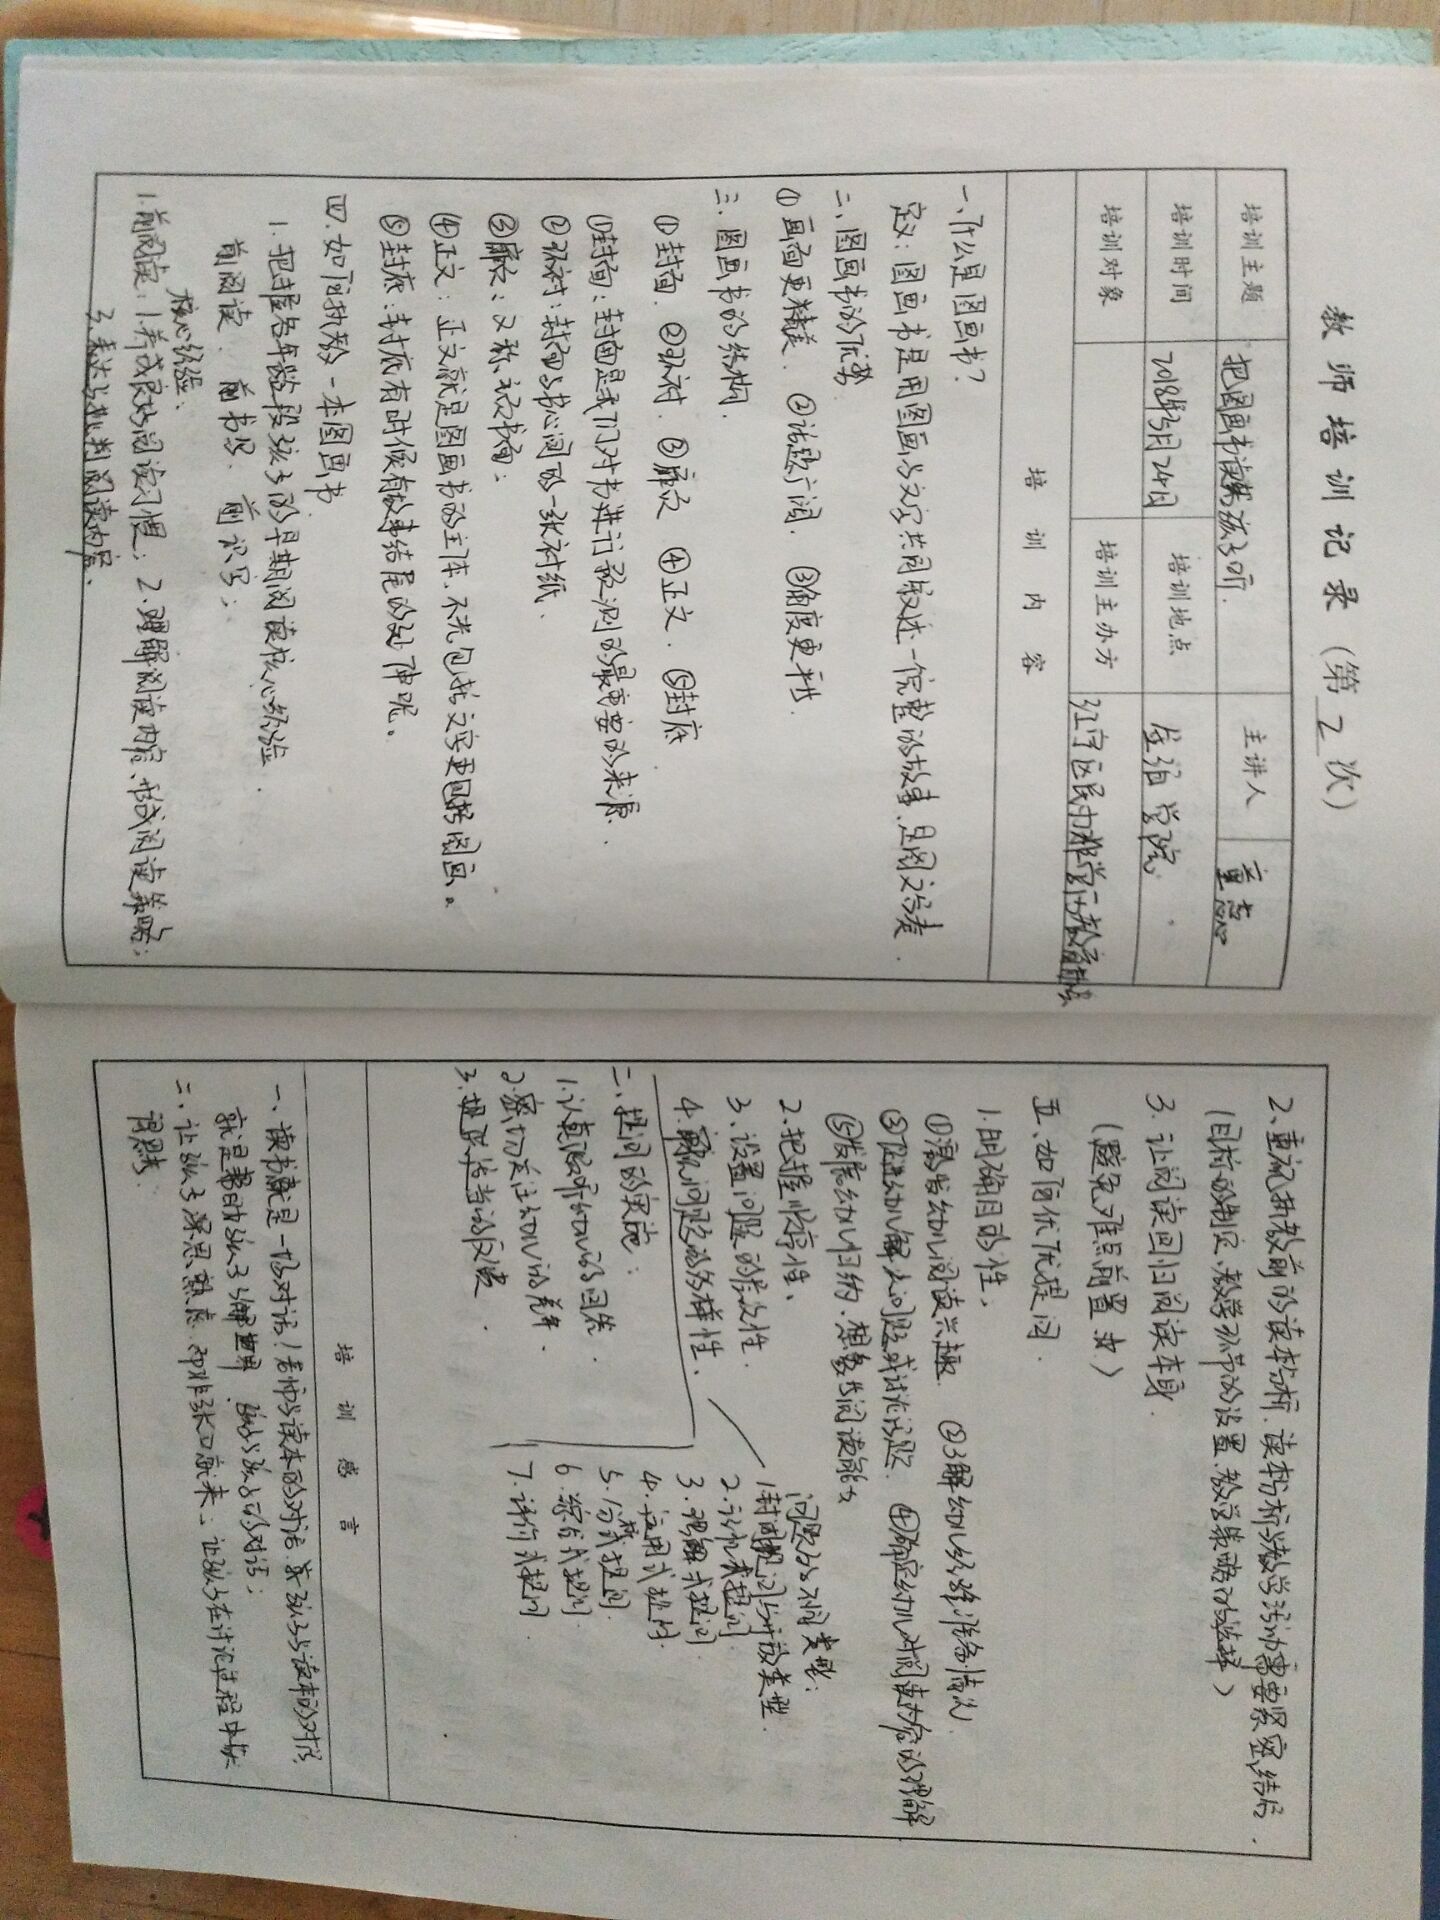 教师培训记录（第2次）
培训主题 把图画书读给孩子听. 主讲人
培训时间 2018年3月24日 培训地点 学院.
培训对象 培训主办方 江宁区民办非学历教育
培训内容
一、什么是图画书?
定义:图画书是用图画与文字共同叙述一完整的故事、是图文
二、图画书的优势
①画面更精美. ②话题广阔. ③角度更
三.图画书的结构.
①封面. ②环衬. ③扉页 ④正文. ⑤封底
①封面:封面是我们对书进行预测的最重要的来源.
②环衬:封面与书心间的一张衬纸.
③扉页:又称书面;
④正文:正文就是图画书的主体、不光包括文字更包括图画。
⑤封底:封底有时候有故事结尾的处
四.如何执教一本图画书
1.把握各年龄段孩子的早期阅读核心经验.
前阅读. 前书写. 前识字;
核心经验:
1.前阅读:1.养成良好阅读习惯; 2.理解阅读内容、形成阅读策略;
3.表达与批判阅读内容.
2.重视执教前的读本分析.读本分析与教学活动需要紧密结合.
(目标的制定、教学环节的设置.教学策略的选择)
3.让阅读回归阅读本身.
(避免难点前置 )
五、如何优化提问.
1.明确目的性、
①激发幼儿阅读兴趣. ②了解幼儿经验准备情况.
③促进幼儿解决问题或讨论话题. ④确定幼儿对阅读内容的理解
⑤发展幼儿归纳.想象与阅读能力
2.把握顺序性、
3.设置问题的层次性.
4.问题的多样性、
问题的不同类型:
1.封闭提问与开放类型.
2.识记式提问.
3.理解式提问
4.运用式提问.
5.分析式提问.
6.综合式提问
7.评价式提问
二.提问的实施:
1.认真倾听幼儿的回答.
2.密切关注幼儿的差异.
3.提供适当的反馈.
培训感言
一、读书就是一场对话!老师与读本的对话、孩子与读本的对话
就是帮助孩子解 孩子与孩子的对话;
二.让孩子深思熟虑.而非张口就来;让孩子在讨论过程中